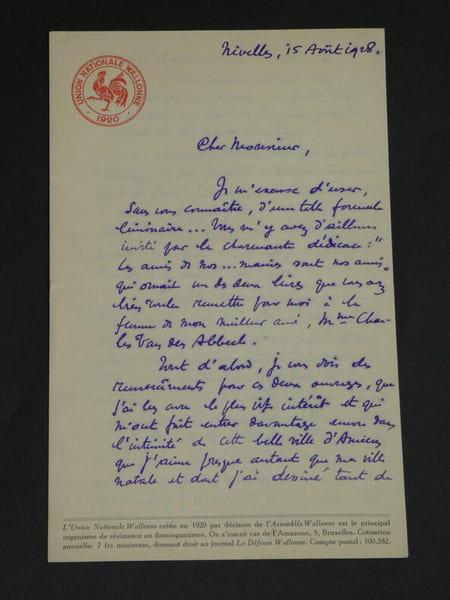 Nivelles, 15 Août 1928.
UNION NATIONALE WALLONNE
1920
Cher Monsieur,
Je m'excuse d'user,
sans vous connaître, d'une telle formule
liminaire... Vous m'y avez d'ailleurs
invité par la charmante dédicace : "
Les amis de nos... amies sont nos amis"
qui ornait un des deux livres que vous avez
bien voulu remettre pour moi à la
femme de mon meilleur ami, Mme Char-
les Van des
Tout d'abord, je vous dois des
remerciements pour ces deux ouvrages, que
j'ai lus avec le plus vif intérêt et qui
m'ont fait entrer davantage encore dans
l'intimité de cette belle ville d'Amiens
que j'aime presque autant que ma ville
natale et dont j'ai dessiné tant de
L'Union Nationale Wallonne créée en 1920 par décision de l'Assemblée Wallonne est le principal
organisme de résistance au flamingantisme. On s'inscrit rue de l'Amazone, 5, Bruxelles. Cotisation
annuelle: 7 frs minimum, donnant droit au journal La Défense Wallonne. Compte postal : 100.382.